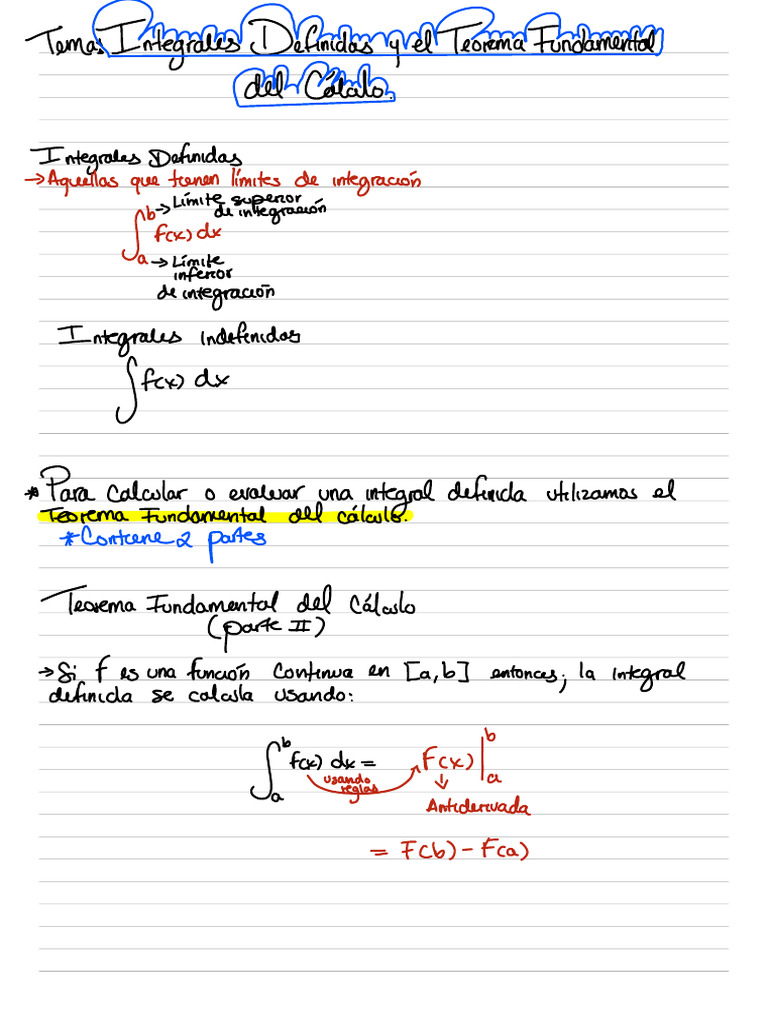 Temas Integrales Definidas y el Teorema Fundamental
del Cálculo.
Integrales Definidas
→Aquellas que tienen límites de integración
∫ₐᵇ f(x) dx
b→Límite superior
de integración
a→Límite
inferior
de integración
Integrales indefinidas
∫f(x) dx
* Para calcular o evaluar una integral definida utilizamos el
Teorema Fundamental del cálculo.
*Contiene 2 partes
Teorema Fundamental del Cálculo
(parte II)
→Si f es una función continua en [a,b] entonces; la integral
definida se calcula usando:
∫ₐᵇ f(x) dx = F(x)|ₐᵇ
usando
reglas
↓
Antiderivada
= F(b) - F(a)